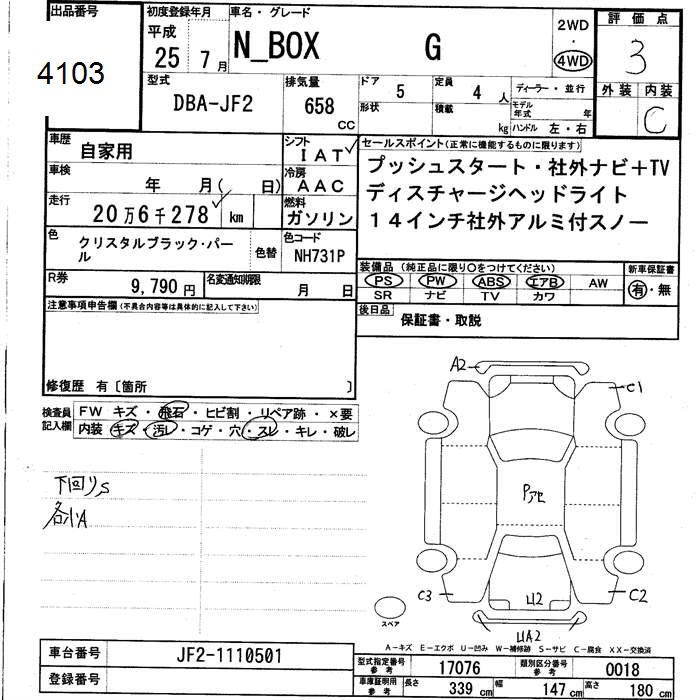 出品番号
4103
初度登録年月
平成
25 7月
車名・グレード
N_BOX G
2WD
・
4WD
評価点
3
外装 内装
C
型式
DBA-JF2
排気量
658
CC
ドア
5
形状
定員
4人
積載
kg
ディーラー・並行
モデル年式 年
ハンドル 左・右
車歴
自家用
シフト
IAT
車検
年 月( 日)
冷房
AAC
走行
20万6千278 km
燃料
ガソリン
色
クリスタルブラック・パール
色替
色コード
NH731P
R券
9,790円
名変通知期限
月 日
セールスポイント(正常に機能するものに限ります)
プッシュスタート・社外ナビ+TV
ディスチャージヘッドライト
14インチ社外アルミ付スノー
装備品(純正品に限り〇をつけてください)
PS PW ABS エアB AW
SR ナビ TV カワ
新車保証書
有・無
後日品
保証書・取説
注意事項申告欄(不具合内容等は具体的に記入して下さい)
修復歴 有〔箇所 〕
検査員記入欄
FW キズ・飛石・ヒビ割・リペア跡・×要
内装 キズ・汚レ・コゲ・穴・スレ・キレ・破レ
下回りS
各小A
A2
C1
Pアセ
C3
U2
C2
UA2
スペア
A-キズ E-エクボ U-凹み W-補修跡 S-サビ C-腐食 XX-交換済
車台番号
JF2-1110501
登録番号
型式指定番号
参考
17076
類別区分番号
参考
0018
車庫証明用
参考
長さ 339cm 幅 147cm 高さ 180cm